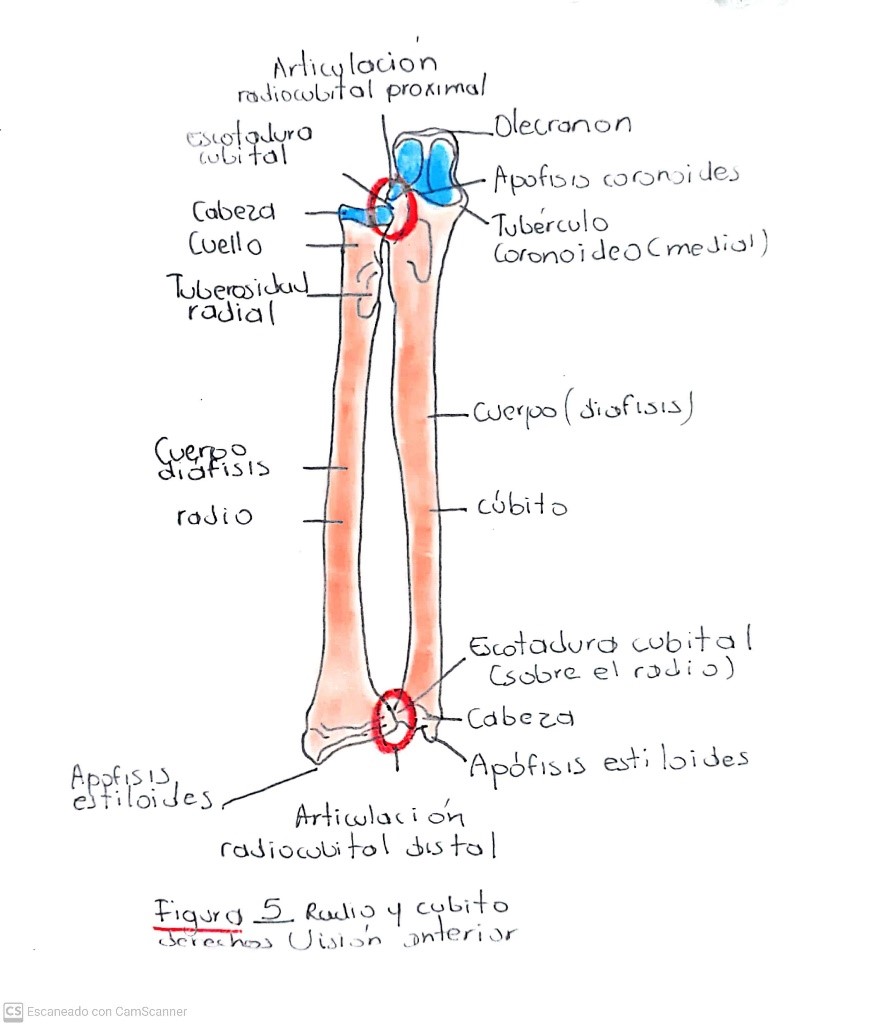 Articulación
radiocubital proximal
escotadura
cubital
Olecranon
Apofisis coronoides
Cabeza
Tubérculo
coronoideo (medial)
Cuello
Tuberosidad
radial
cuerpo (diafisis)
Cuerpo
diáfisis
radio
cúbito
Escotadura cubital
(sobre el radio)
Cabeza
Apófisis estiloides
Apofisis
estiloides
Articulación
radiocubital distal
Figura 5 Radio y cubito
derechos Visión anterior
CS Escaneado con CamScanner